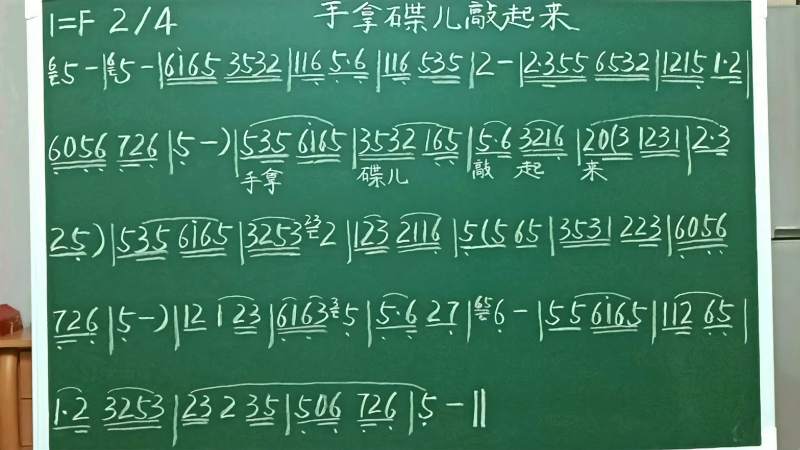 1=F 2/4 手拿碟儿敲起来
6 5 - | 6 5 - | 6165 3532 | 116 5·6 | 116 535 | 2 - | 2·355 6532 | 1215 1·2 |
6056 726 | 5 -) | 535 6165 | 3532 165 | 5·6 3216 | 20(3 1231 | 2·3
手拿 碟儿 敲 起 来
25) | 535 6165 | 3253 23 2 | 123 2116 | 5(5 65 | 3531 223 | 6056
726 | 5 -) | 12 1 23 | 6163 3 5 | 5·6 27 | 65 6 - | 55 6165 | 112 65 |
1·2 3253 | 23 2 35 | 506 726 | 5 - ||